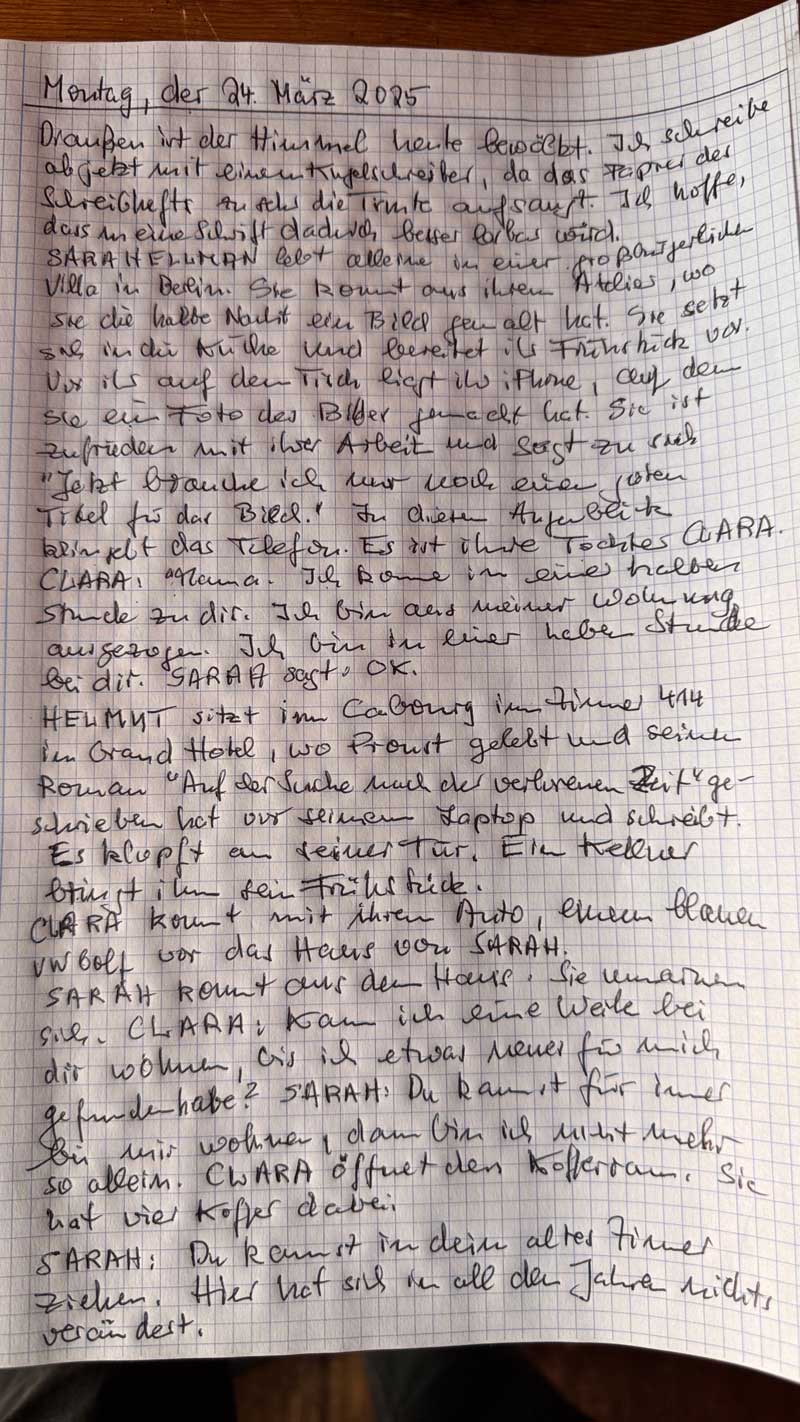 Montag, der 24. März 2025
Draußen ist der Himmel heute bewölkt. Ich schreibe
ab jetzt mit einem Kugelschreiber, da das Papier des
Schreibhefts zu sehr die Tinte aufsaugt. Ich hoffe,
dass meine Schrift dadurch besser lesbar wird.
SARAH HELLMAN lebt alleine in einer großbürgerlichen
Villa in Berlin. Sie kommt aus ihrem Atelier, wo
sie die halbe Nacht ein Bild gemalt hat. Sie setzt
sich in die Küche und bereitet ihr Frühstück vor.
Vor ihr auf dem Tisch liegt ihr iPhone, auf dem
sie ein Foto des Bildes gemacht hat. Sie ist
zufrieden mit ihrer Arbeit und sagt zu sich
"Jetzt brauche ich nur noch einen guten
Titel für das Bild." In diesem Augenblick
klingelt das Telefon. Es ist ihre Tochter CLARA.
CLARA: "Mama. Ich komme in einer halben
Stunde zu dir. Ich bin aus meiner Wohnung
ausgezogen. Ich bin in einer halben Stunde
bei dir. SARAH sagt: OK.
HELMUT sitzt im Cabourg im Zimmer 414
im Grand Hotel, wo Proust gelebt und seinen
Roman "Auf der Suche nach der verlorenen Zeit" ge-
schrieben hat vor seinem Laptop und schreibt.
Es klopft an seiner Tür. Ein Kellner
bringt ihm sein Frühstück.
CLARA kommt mit ihrem Auto, einem blauen
VW Golf vor das Haus von SARAH.
SARAH kommt aus dem Haus. Sie umarmen
sich. CLARA: Kann ich eine Weile bei
dir wohnen, bis ich etwas neues für mich
gefunden habe? SARAH: Du kannst für immer
bei mir wohnen, dann bin ich nicht mehr
so allein. CLARA öffnet den Kofferraum. Sie
hat vier Koffer dabei.
SARAH: Du kannst in dein altes Zimmer
ziehen. Hier hat sich in all den Jahren nichts
verändert.